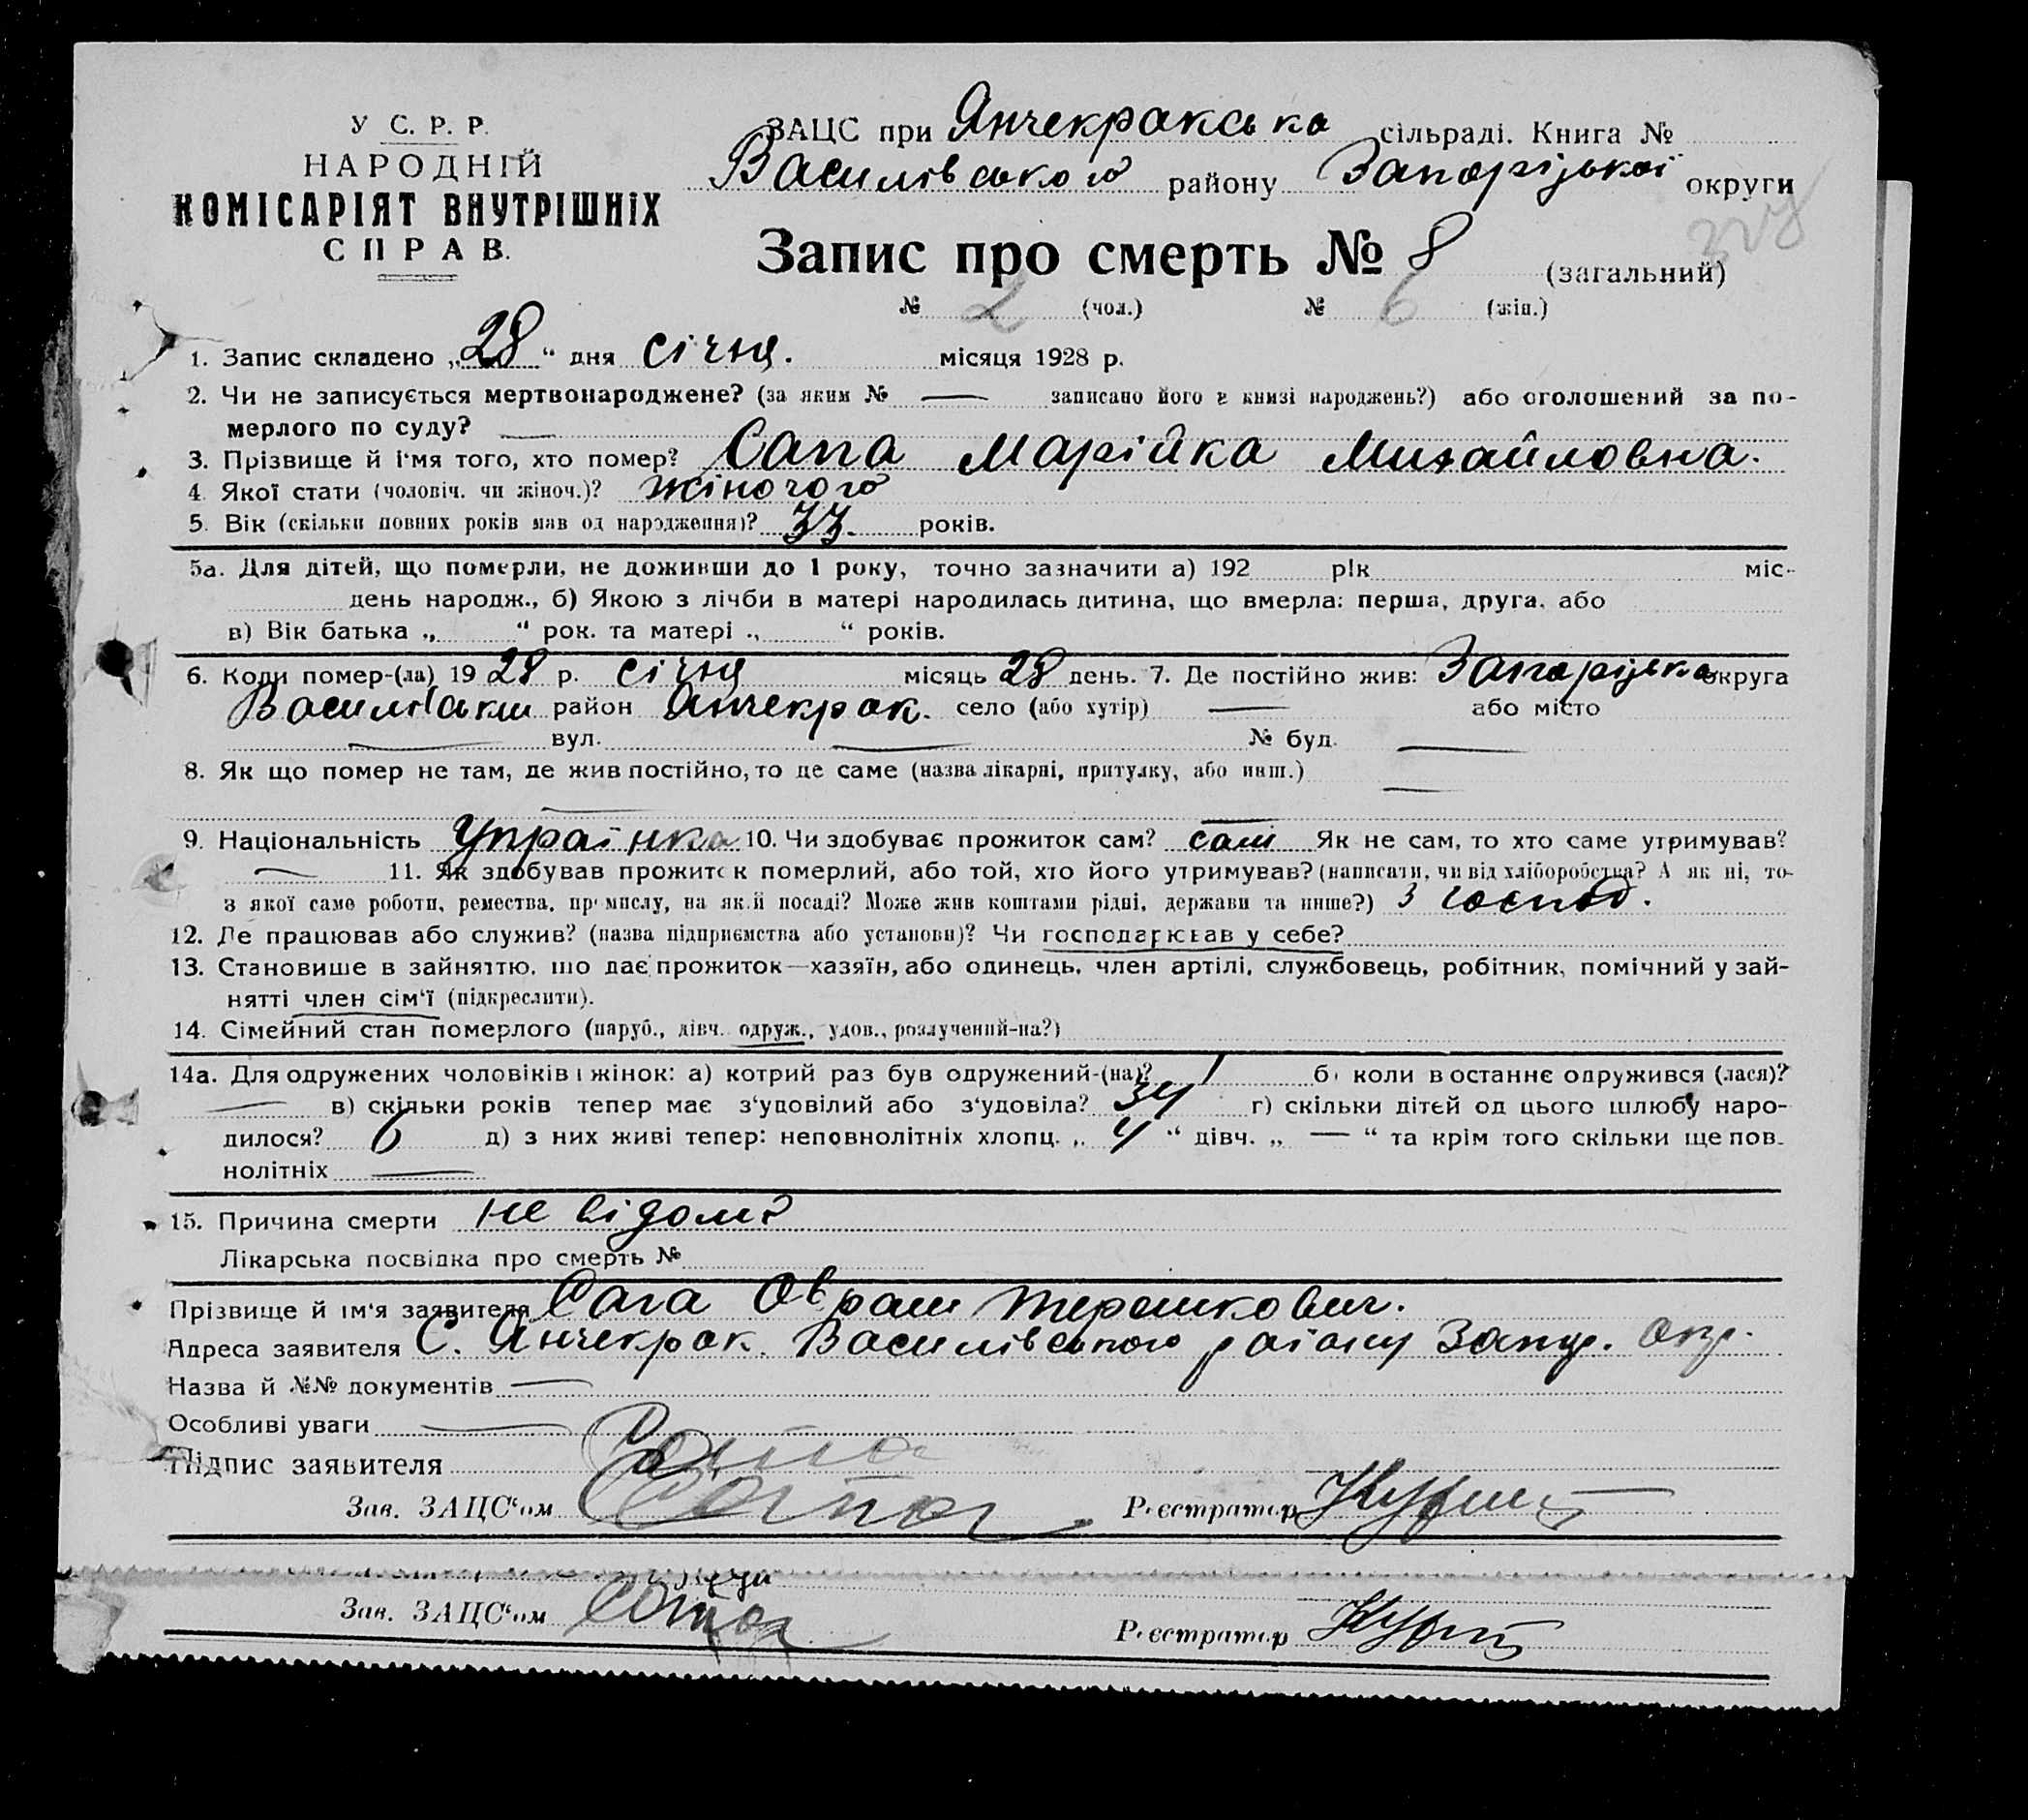 У С. Р. Р.
НАРОДНІЙ
КОМІСАРІЯТ ВНУТРІШНІХ
СПРАВ.
ЗАЦС при Янчекракська сільраді. Книга №
Василівського району Запоріцької округи
Запис про смерть № 8 (загальний)
№ 2 (чол.) № 6 (жін.)
1. Запис складено „28“ дня січня. місяця 1928 р.
2. Чи не записується мертвонароджене? (за яким № — записано його в книзі народжень?) або оголошений за по-
мерлого по суду? —
3. Прізвище й і'мя того, хто помер? Сапа Марійка Михайловна.
4. Якої стати (чоловіч. чи жіноч.)? жіночого
5. Вік (скільки повних років мав од народження)? 33. років.
5а. Для дітей, що померли, не доживши до 1 року, точно зазначити а) 192 рік міс-
день народж., б) Якою з лічби в матері народилась дитина, що вмерла: перша, друга, або
в) Вік батька „ “ рок. та матері „ “ років.
6. Коли помер-(ла) 1928 р. січня місяць 28 день. 7. Де постійно жив: Запоріцька округа
район Янчекрак. село (або хутір) — або місто
— вул. — № буд. —
8. Як що помер не там, де жив постійно, то де саме (назва лікарні, притулку, або инш.) —
9. Національність Украінка 10. Чи здобуває прожиток сам? самі Як не сам, то хто саме утримував?
— 11. Як здобував прожиток померлий, або той, хто його утримував? (написати, чи від хліборобства? А як ні, то-
з якої саме роботи, ремества, промислу, на якій посаді? Може жив коштами рідні, держави та инше?) з господ.
12. Де працював або служив? (назва підприємства або установи)? Чи господарював у себе?
13. Становище в зайняттю, що дає прожиток—хазяїн, або одинець, член артілі, службовець, робітник, помічний у зай-
нятті член сім'ї (підкреслити).
14. Сімейний стан померлого (паруб., дівч. одруж., удов., розлучений-на?)
14а. Для одружених чоловіків і жінок: а) котрий раз був одружений-(на)? 1 б) коли востаннє одружився (лася)?
— в) скільки років тепер має з'удовілий або з'удовіла? 34 г) скільки дітей од цього шлюбу наро-
дилося? 6 д) з них живі тепер: неповнолітніх хлопц. „4“ дівч. „—“ та крім того скільки ще пов-
нолітніх —
15. Причина смерти не відома
Лікарська посвідка про смерть №
Прізвище й ім'я заявителя Сапа Оврам Терешкович.
Адреса заявителя С. Янчекрак. Василівського району Запор. окр.
Назва й №№ документів —
Особливі уваги —
Підпис заявителя Сапа
Зав. ЗАЦС'ом Сапа Реєстратор
Зав. ЗАЦС'ом Сапа Реєстратор